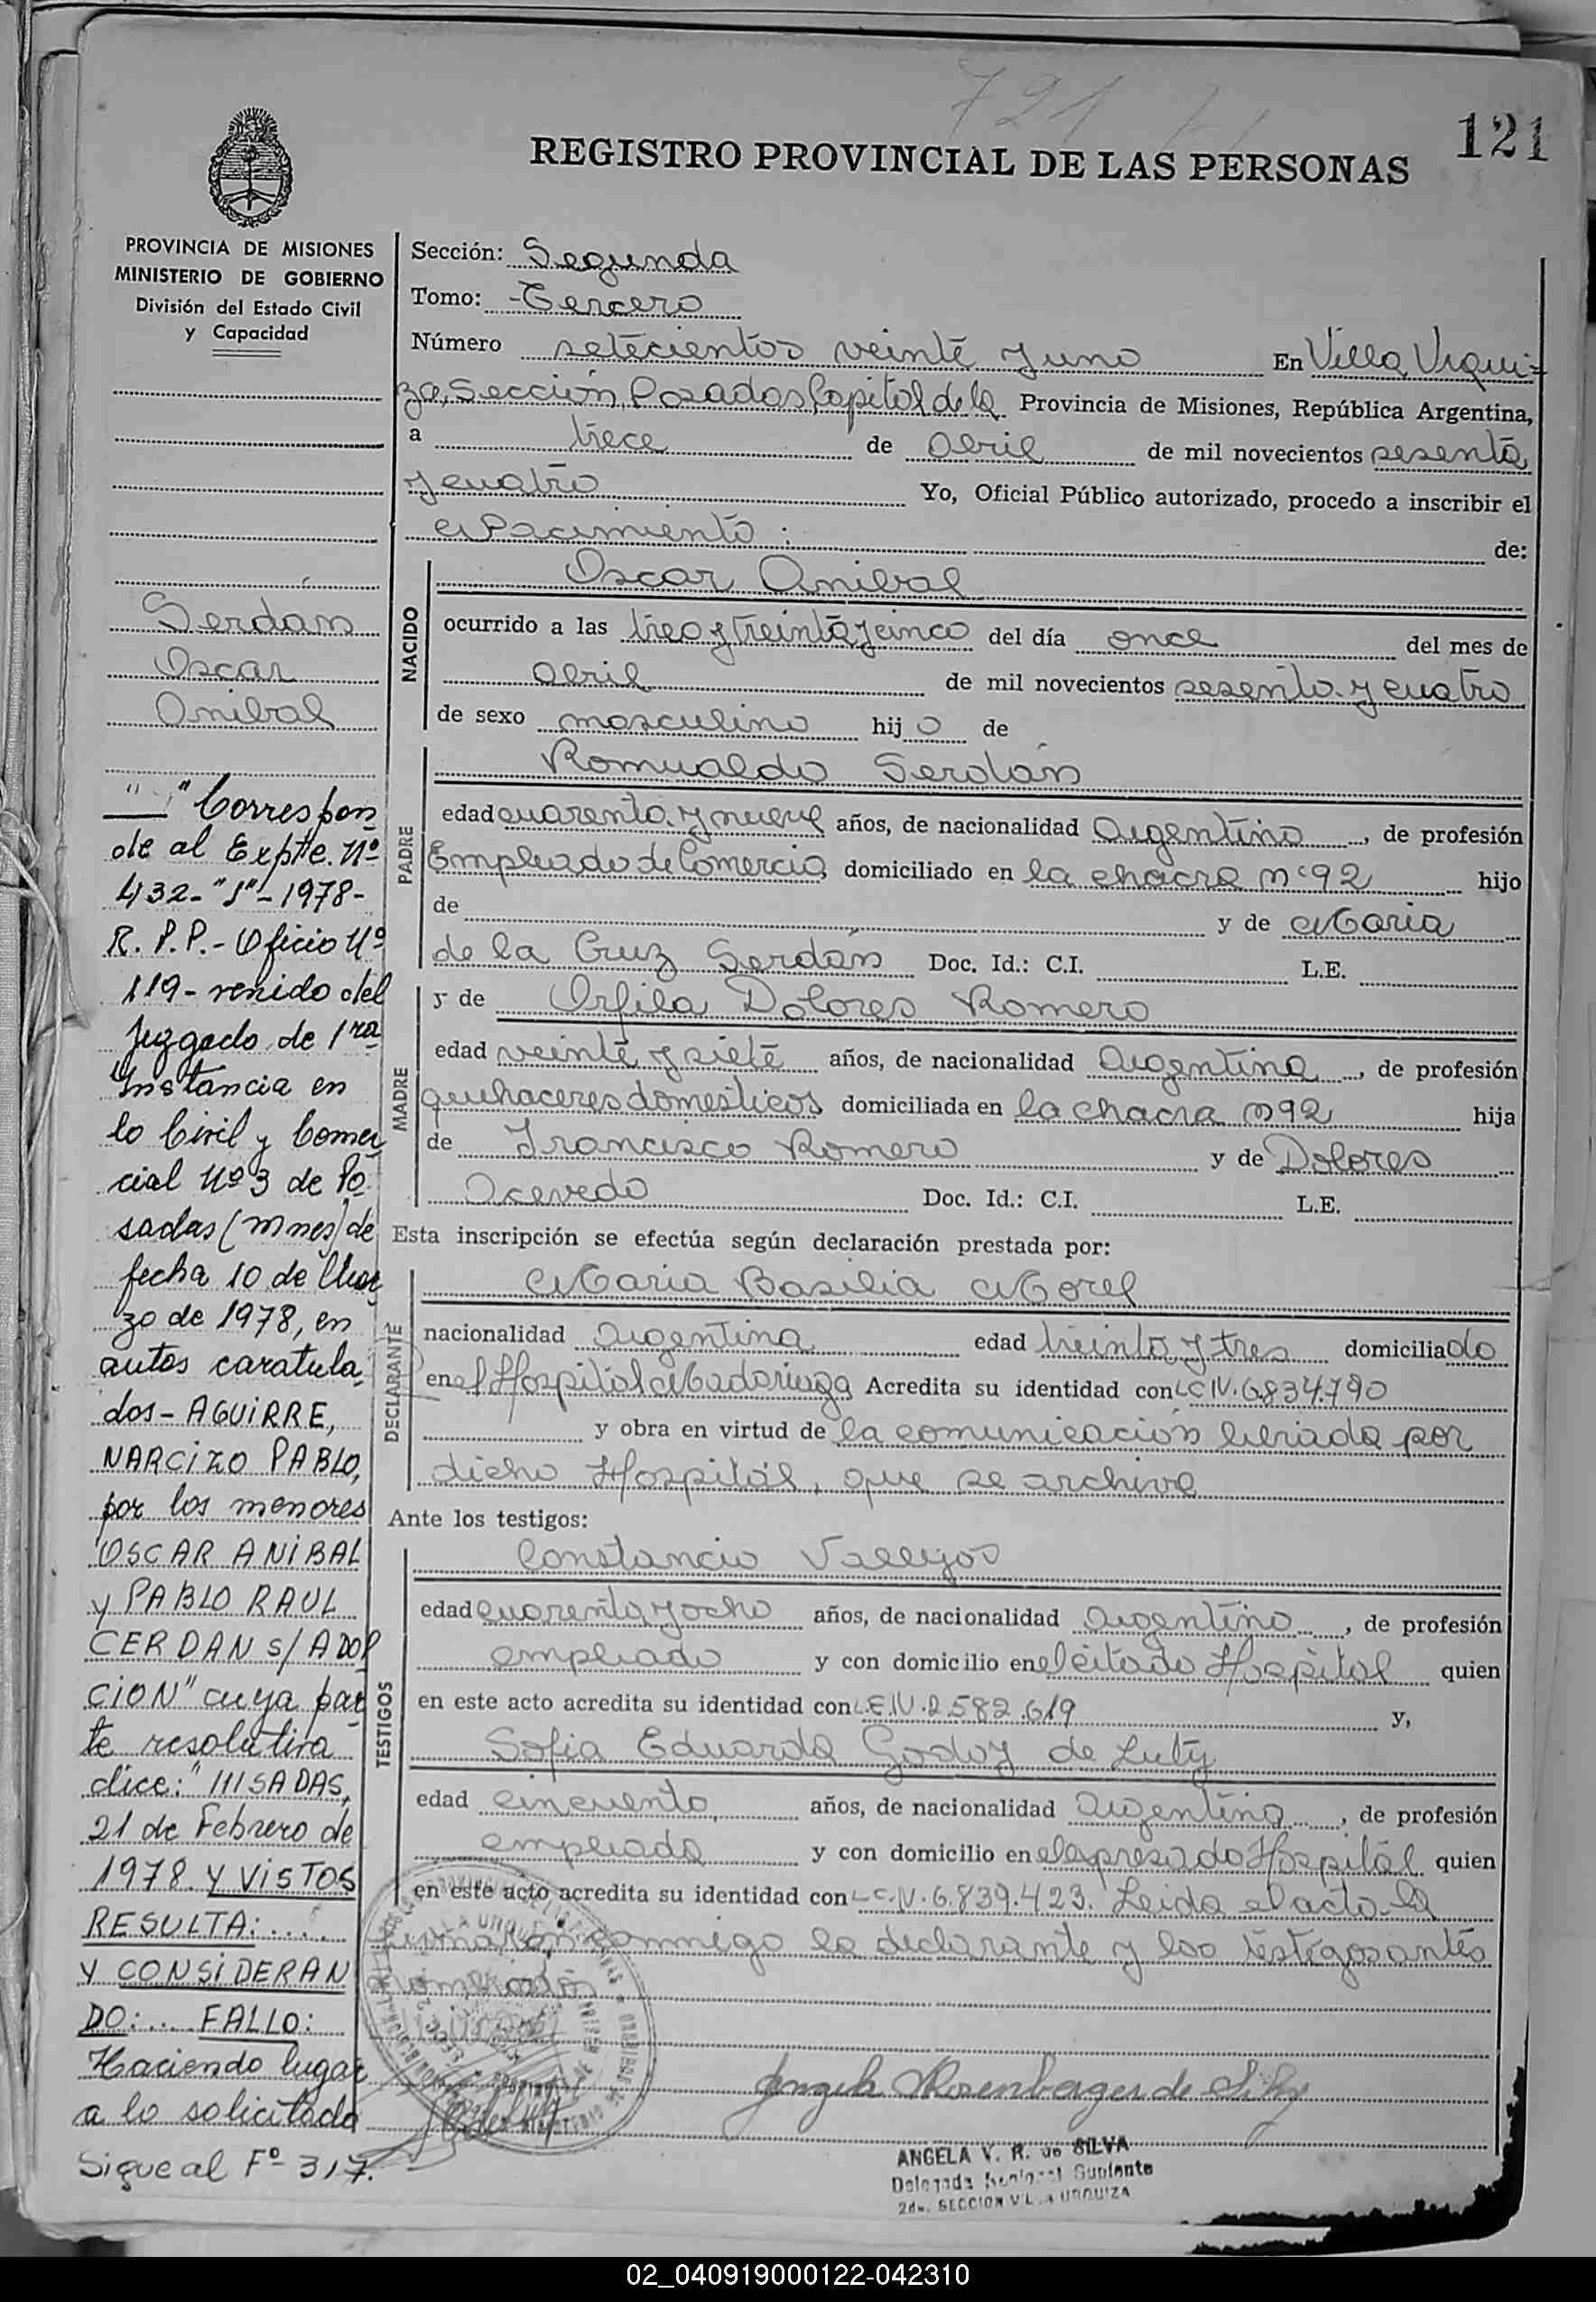 721
121
REGISTRO PROVINCIAL DE LAS PERSONAS
PROVINCIA DE MISIONES
MINISTERIO DE GOBIERNO
División del Estado Civil
y Capacidad
Serdán
Oscar
Anibal
"Correspon
de al Expte. Nº
432-"S"-1978-
R.P.P.- Oficio Nº
119- venido del
Juzgado de 1ra
Instancia en
lo Civil y Comer
cial Nº 3 de Po
sadas (Mnes) de
fecha 10 de Mar
zo de 1978, en
autos caratula
dos- AGUIRRE,
NARCIZO PABLO,
por los menores
OSCAR ANIBAL
y PABLO RAUL
CERDAN s/ ADOP
CION" cuya par
te resolutiva
dice: " SADAS,
21 de Febrero de
1978 Y VISTOS
RESULTA:.....
Y CONSIDERAN
DO:.... FALLO:
Haciendo lugar
a lo solicitado
Sigue al Fº 317.
Sección: Segunda
Tomo: Tercero
Número setecientos veinte y uno En Villa Urqui-
za, Sección Posadas, Capital de la Provincia de Misiones, República Argentina,
a trece de Abril de mil novecientos sesenta
y cuatro Yo, Oficial Público autorizado, procedo a inscribir el
Nacimiento: de:
NACIDO
Oscar Anibal
ocurrido a las tres y treinta y cinco del día once del mes de
Abril de mil novecientos sesenta y cuatro
de sexo masculino hijo de
PADRE
Romualdo Serdán
edad cuarenta y nueve años, de nacionalidad Argentino, de profesión
Empleado de Comercio, domiciliado en la chacra nº 92 hijo
de y de Maria
de la Cruz Serdán Doc. Id.: C.I. L.E.
MADRE
y de Orfila Dolores Romero
edad veinte y siete años, de nacionalidad Argentina, de profesión
quehaceres domesticos domiciliada en la chacra n 92 hija
de Francisco Romero y de Dolores
Acevedo Doc. Id.: C.I. L.E.
Esta inscripción se efectúa según declaración prestada por:
DECLARANTE
Maria Basilia Morel
nacionalidad Argentina edad treinta y tres domiciliado
en el Hospital Madariaga Acredita su identidad con L.C.N. 6.834.790
y obra en virtud de la comunicación librada por
dicho Hospital, que se archiva
Ante los testigos:
TESTIGOS
Constancio Vallejos
edad cuarenta y ocho años, de nacionalidad Argentino, de profesión
empleado y con domicilio en el citado Hospital quien
en este acto acredita su identidad con L.E.N. 2.582.619 y,
Sofia Eduarda Godoy de Luty
edad cincuenta, años, de nacionalidad Argentina, de profesión
empleada y con domicilio en el expresado Hospital quien
en este acto acredita su identidad con L.C.N. 6.839.423. Leida el acta la
firmaron conmigo la declarante y los testigos antes
nombrados
Angela Rosenberger de Silva
ANGELA V. R. de SILVA
Delegada Suplente
2da. SECCION VILLA URQUIZA
02_040919000122-042310